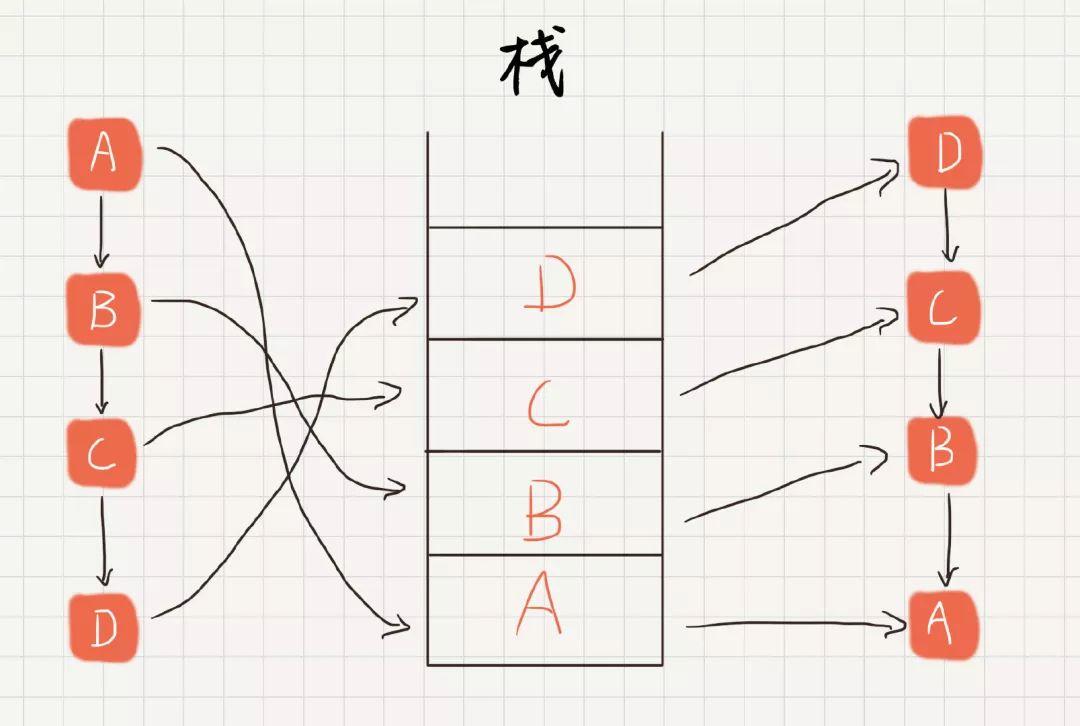 栈
A
B
C
D
D
C
B
A
D
C
B
A